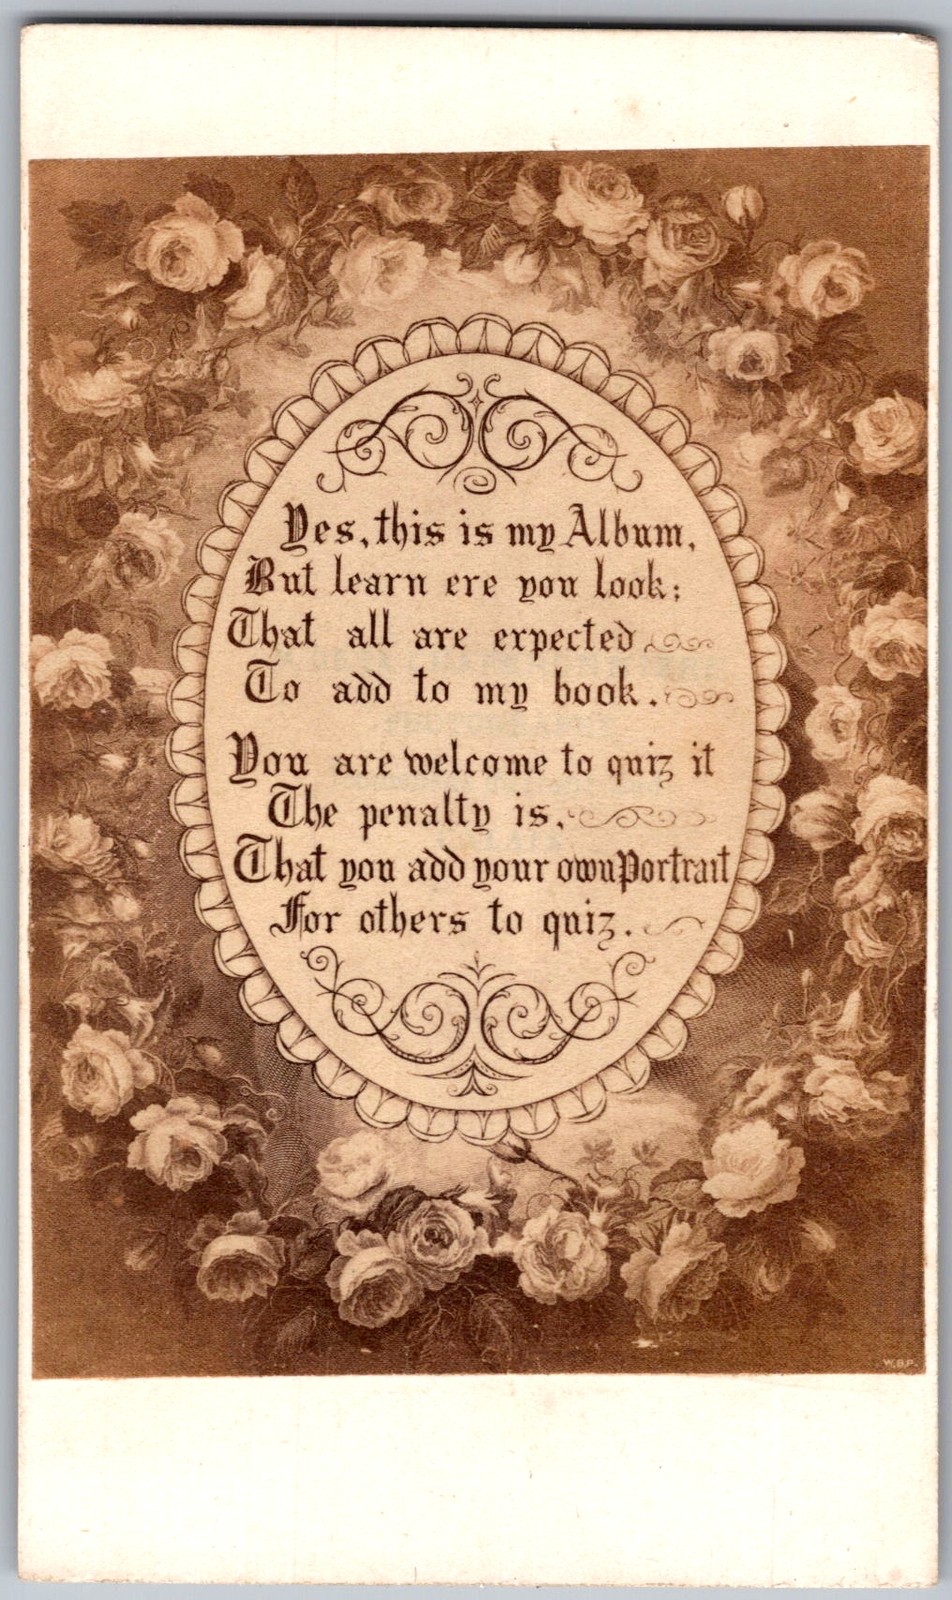 Yes, this is my Album,
But learn ere you look;
That all are expected
To add to my book.
You are welcome to quiz it
The penalty is,
That you add your own Portrait
For others to quiz.
W.B.P.